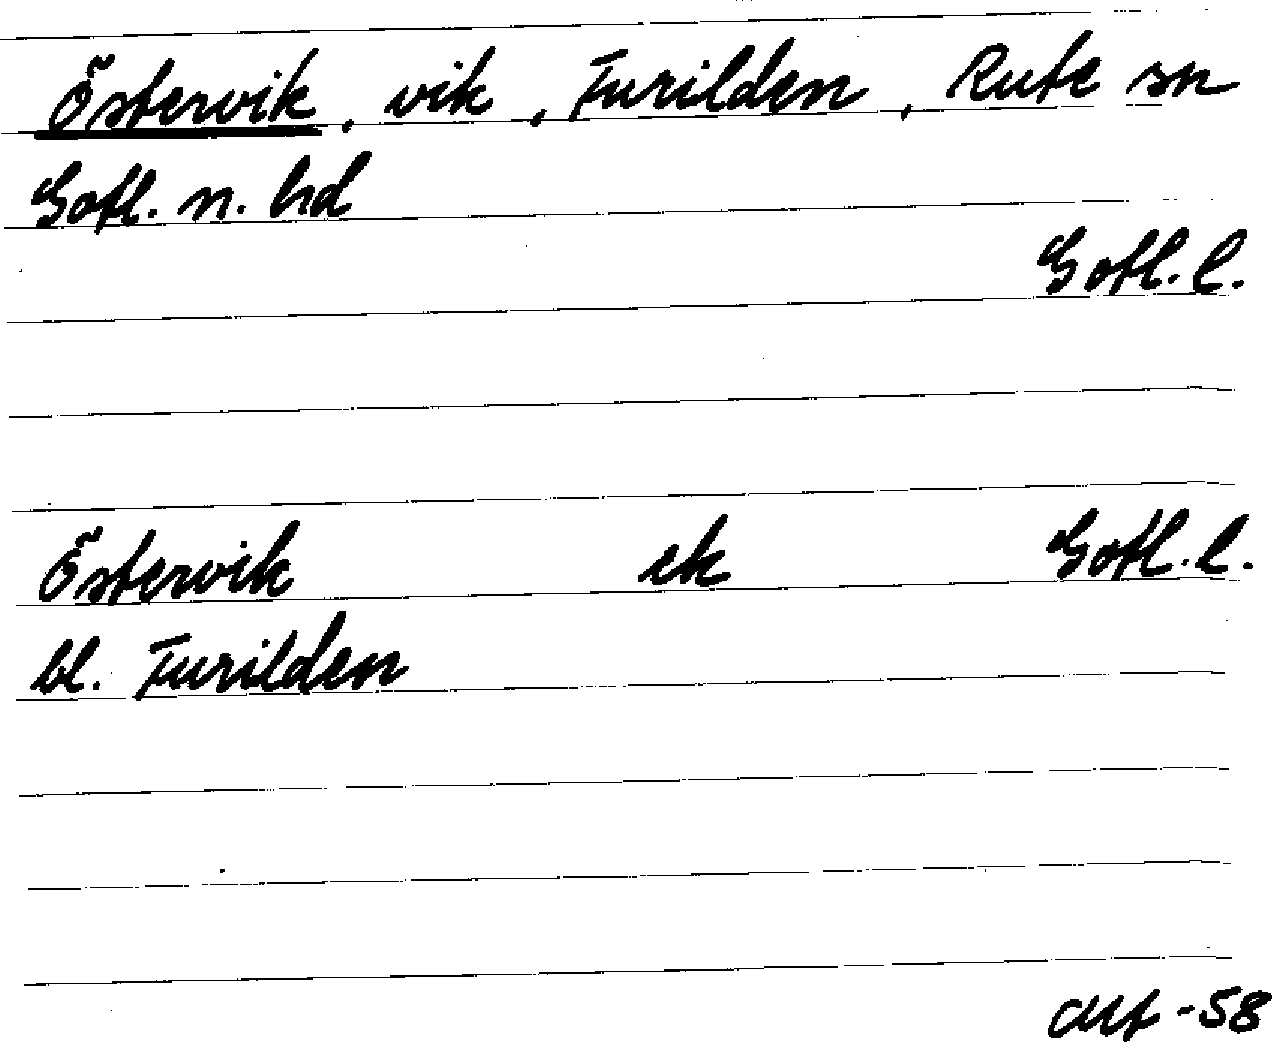 Östervik, vik, Furilden, Rute sn
Gotl. n. hd
Gotl. l.
Östervik ek Gotl. l.
bl. Furilden
-58